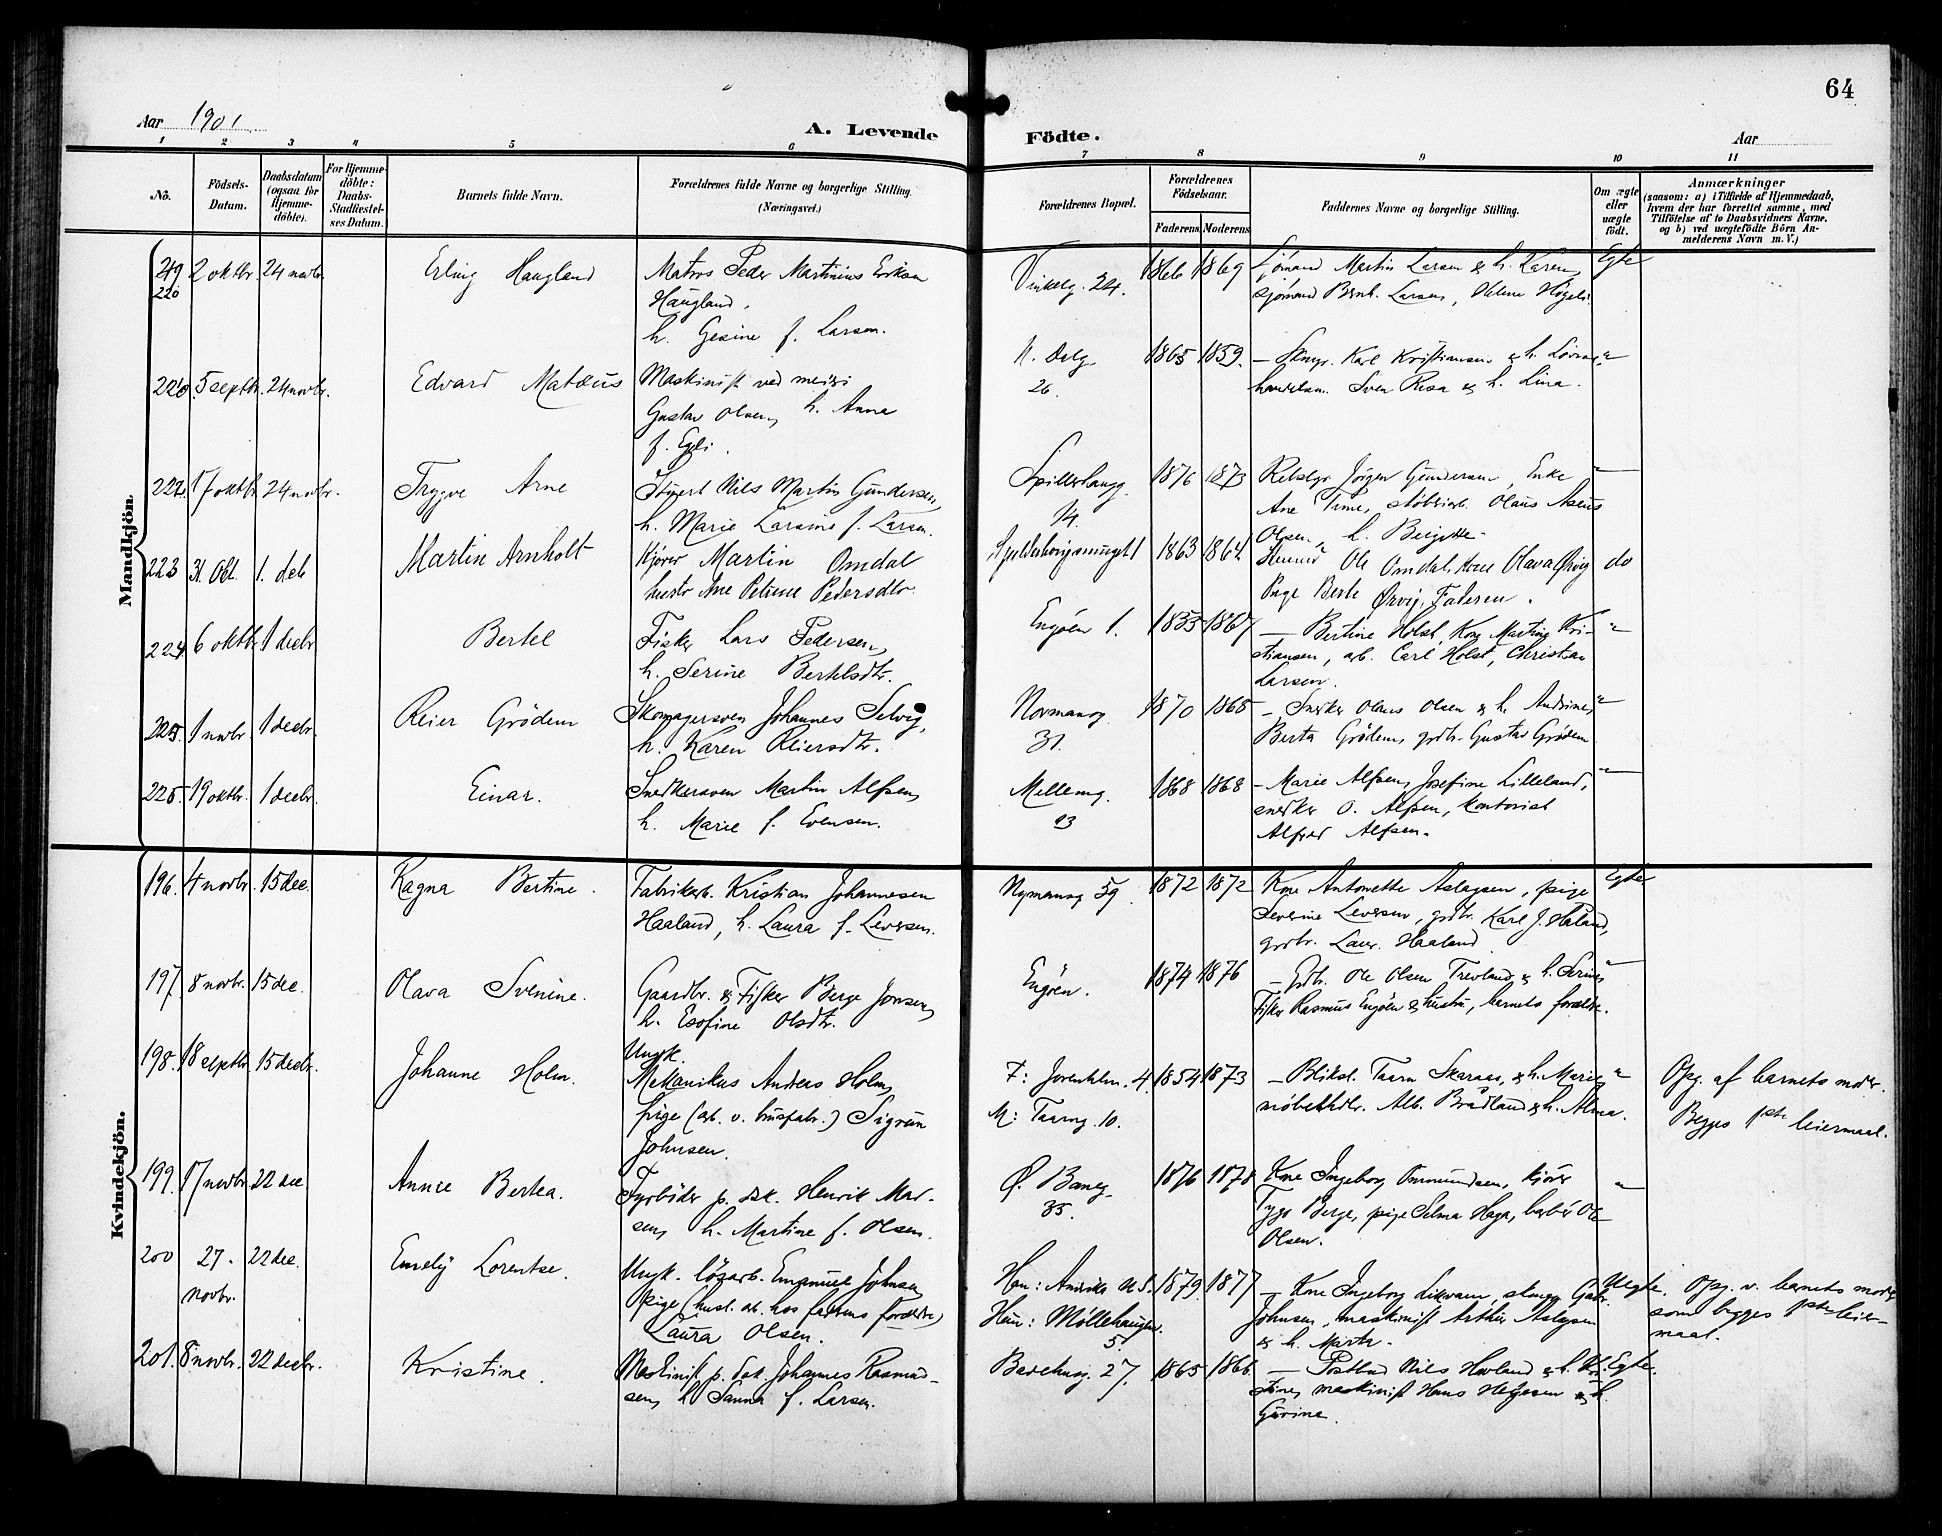 64
Aar 1901
A. Levende Födte.
Aar
1 2 3 4 5 6 7 8 9 10 11
No.
Födsels-Datum.
Daabsdatum (ogsaa for Hjemme-döbte).
For Hjemme-döbte: Daabs-Stadfæstel-ses Datum.
Barnets fulde Navn.
Forældrenes fulde Navne og borgerlige Stilling. (Næringsvei.)
Forældrenes Bopæl.
Forældrenes Födselsaar.
Faderens. Moderens.
Faddernes Navne og borgerlige Stilling.
Om ægte eller uægte födt.
Anmærkninger
(saasom: a) i Tilfælde af Hjemmedaab,
hvem der har forrettet samme, med
Tilföielse af to Daabsvidners Navne,
og b) ved uægtefödte Börn An-
melderens Navn m. V.)
Mandkjön.
220 2 oktbr. 24 novbr. Erling Haugland
Matros Peder Martinius Eriksen
Haugland,
h. Gesine f. Larsen.
Vinkelg. 24. 1866 1869
Sjömand Martin Larsen & h. Karen,
sjömand Bernh. Larsen, Helene
Egte
5 septbr. 24 novbr. Edvard Matæus
Maskinist ved meieri
Gustav Olsen, h. Anna
f. Egeli.
N. Dalg. 26. 1865 1859.
Karl Kristiansen & h.
Sven Risa & h. Lina.
17 oktbr. 24 novbr. Trygve Arne
Stuert Nils Martin Gundersen,
h. Marie Larsine f. Larsen.
14. 1876 1873
Rebslgr. Jörgen Gundersen, Enke
Ane Time, Olaus Aseus
Olsen, h. Birgitte
223 31. Okt. 1. deb Martin Arnholt
Kjörer Martin Omdal
hustr Ane Petrine Pedersdtr.
1863 1864
Ole Omdal, Kone Olava Ørvig
Pige Berte Ørvig, Faderen.
do
224 6 oktbr. 1 decbr. Bertel
Fisker Lars Pedersen,
h. Serine Bertelsdtr.
Engöen 1. 1835 1867
— Bertine Holst, Kone Martine Kri-
stiansen, arb. Carl Holst, Christian
Larsen.
225. 1 novbr. 1 decbr. Reier Grödem
Skomagersven Johannes Selvig,
h. Karen Reiersdtr.
Normansg. 31. 1870 1868
— Snekker Olaus Olsen & h. Andrine,
Berta Grödem, grdbr. Gustav Grödem
225. 19 oktbr. 1 decbr. Einar.
Snedkersven Martin Alfsen,
h. Marie f. Evensen.
Mellemg. 1868 1868
— Marie Alfsen, Josefine Lilleland,
snedker O. Alfsen, kontorist
Alfred Alfsen.
Kvindekjön.
196. 4 novbr. 15 dec. Ragna Bertine.
Fabrikarb. Kristian Johannesen
Haaland, h. Laura f. Leversen.
Nymansg 59. 1872 1872
Kone Antonette Aslagsen, pige
Severine Leversen, grdbr. Karl J. Haland,
grdbr. Laur. Haaland
Egte
197. 8 novbr. 15 dec. Olava Svenine.
Gaardbr. & Fisker Berge Jonsen,
h. Esofine Olsdtr.
Engöen. 1874 1876
— Grdbr. Ole Olsen Trevland & h. Serine,
Fisker Rasmus Engöen & hustru, barnets forældre.
198. 18 septbr. 15 decbr. Johanne Holm.
Ungk.
Mekanikus Andreas Holm,
pige (arb. v. husfabr.) Sigrun
Johnsen.
F: 4. 1854 1873
M: Taarng. 10.
— Blikst. Taarn Skaraas, & h. Marie,
möbelhdlr. Alb. Brådland & h. Alma.
Opg. af barnets moder.
Begges 1ste leiermaal.
199. 17 novbr. 22 dec Annie Bertea.
Fyrböder p. dsk. Henrik Mar-
sen, h. Martine f. Olsen.
Ø. Baneg. 35. 1876 1878
Kone Ingeborg Ommundsen, kjörer
Berge, pige Selma Haga, barbér Ole
Olsen.
200 27. novbr. 22 dec. Emely Lorentse.
Ungk. lösarb. Emanuel Johnsen
Pige (husl. arb. hos faderens forældre)
Laura Olsen.
1879 1877
Hun: Möllehaugen. 5.
— Kone Ingeborg Gabr.
Johnsen, maskinist Arthur Aslagsen
& h. Marta.
Uegte. Opg. v. barnets moder
som begges 1ste leier-
maal.
201. 8 novbr. 22 decbr. Kristine.
Maskinist p. dsk. Johannes Rasmus-
sen, h. Sanna f. Larsen.
27. 1865 1866.
— Postbud Nils Havland & h.
maskinist Hans Helgesen & h.
Gurine.
Egte.